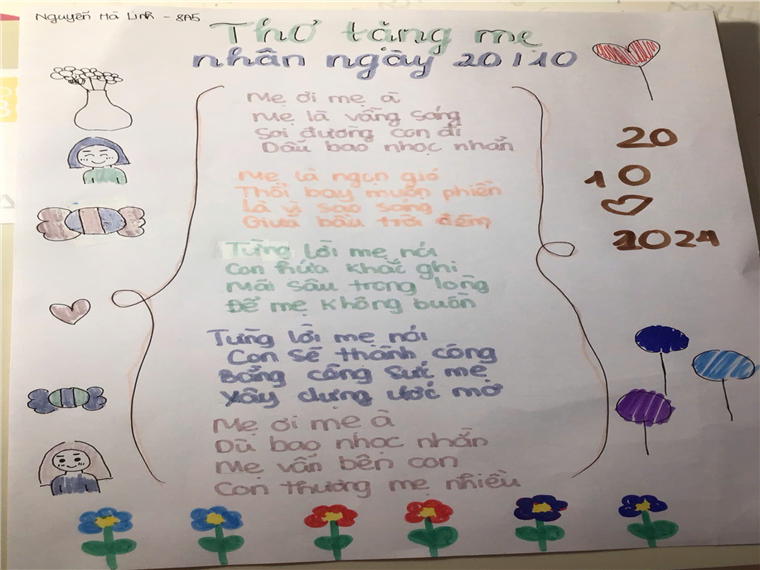 Nguyễn Hà Linh - 8A5
Thơ tặng mẹ
nhân ngày 20/10
Mẹ ơi mẹ à
Mẹ là vầng sáng
Soi đường con đi
Dẫu bao nhọc nhằn
Mẹ là ngọn gió
Thổi bay muộn phiền
Là vì sao sáng
Giữa bầu trời đêm
Từng lời mẹ nói
Con hứa khắc ghi
Mãi sâu trong lòng
Để mẹ không buồn
Từng lời mẹ nói
Con sẽ thành công
Bằng công sức mẹ
Xây dựng ước mơ
Mẹ ơi mẹ à
Dù bao nhọc nhằn
Mẹ vẫn bên con
Con thương mẹ nhiều
20
10
2024